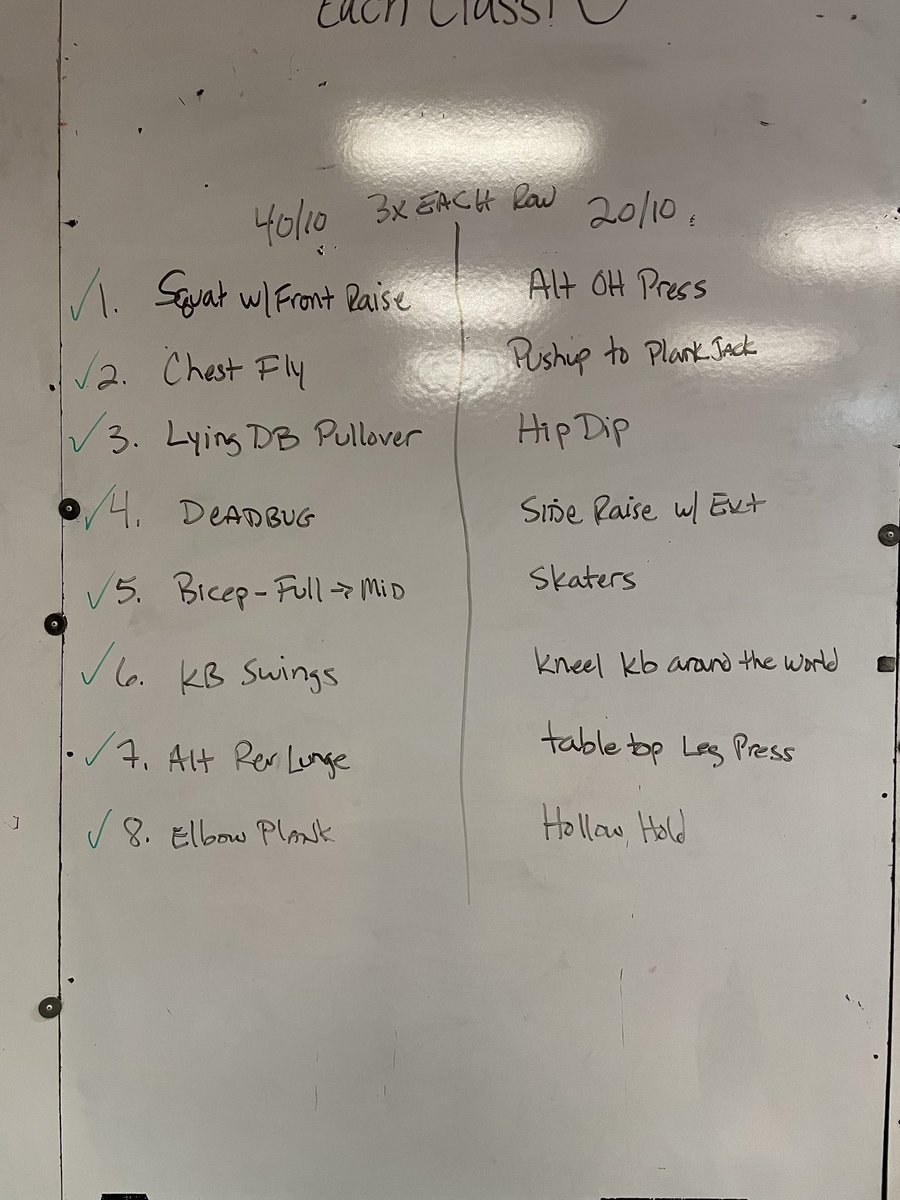 Each Class!
40/10 3x EACH Row 20/10
✓ 1. Squat w/ Front Raise Alt OH Press
✓ 2. Chest Fly Pushup to Plank Jack
✓ 3. Lying DB Pullover Hip Dip
✓ 4. DEADBUG Side Raise w/ Ext
✓ 5. Bicep - Full → Mid Skaters
✓ 6. KB Swings Kneel kb around the world
✓ 7. Alt Rev Lunge table top Leg Press
✓ 8. Elbow Plank Hollow Hold